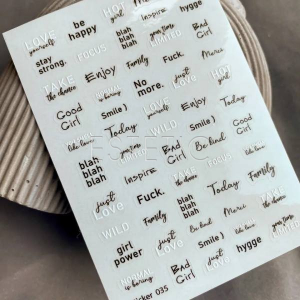 LOVE yourself be happy HOT girl Inspire hygge
stay strong. FOCUS blah blah blah Family your time is LIMITED Bad Girl
TAKE the chance Enjoy No more. Fuck. Merci
Good Girl is boring Just Love LOVE yourself Enjoy HOT girl
Smile) Today WILD Smile) your time is LIMITED
blah blah blah Inspire Bad Girl Be kind FOCUS
Just Love Fuck. Family Today Family TAKE the chance
WILD LOVE yourself blah blah blah Merci Just Love
girl power Family Be kind Smile) hygge
NORMAL is boring Bad Girl Today Inspire your time is LIMITED
ESTETIC
sticker 035